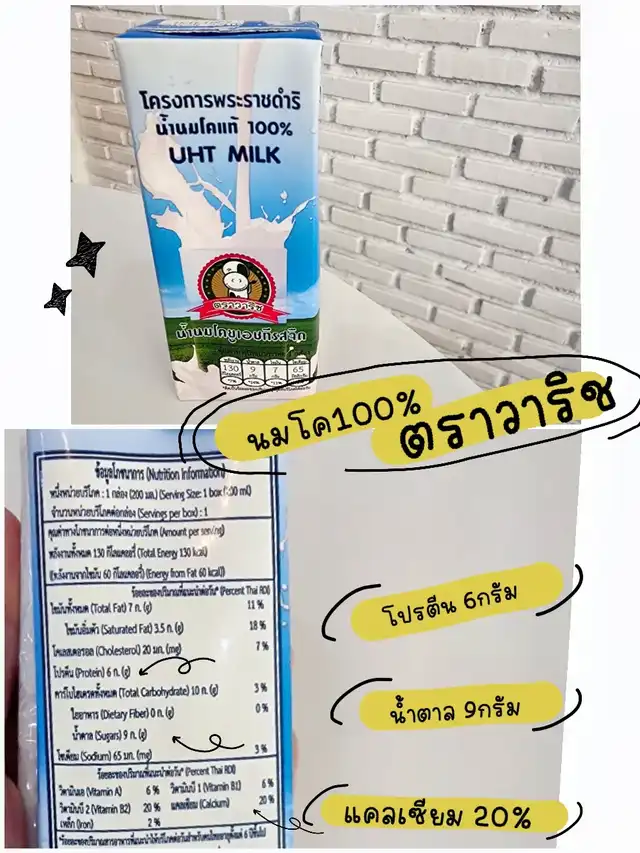 โครงการพระราชดำริ
น้ำนมโคแท้ 100%
UHT MILK
ตราวาริช
น้ำนมโคยูเอชทีรสจืด
130 9 7 65
นมโค100%
ตราวาริช
ข้อมูลโภชนาการ (Nutrition Information)
หนึ่งหน่วยบริโภค : 1 กล่อง (200 มล.) (Serving Size: 1 box (200 ml)
จำนวนหน่วยบริโภคต่อกล่อง (Servings per box) : 1
คุณค่าทางโภชนาการต่อหนึ่งหน่วยบริโภค (Amount per serving)
พลังงานทั้งหมด 130 กิโลแคลอรี่ (Total Energy 130 kcal)
(พลังงานจากไขมัน 60 กิโลแคลอรี่) (Energy from Fat 60 kcal)
ร้อยละของปริมาณที่แนะนำต่อวัน* (Percent Thai RDI)
ไขมันทั้งหมด (Total Fat) 7 ก. (g) 11 %
ไขมันอิ่มตัว (Saturated Fat) 3.5 ก. (g) 18 %
โคเลสเตอรอล (Cholesterol) 20 มก. (mg) 7 %
โปรตีน (Protein) 6 ก. (g)
คาร์โบไฮเดรตทั้งหมด (Total Carbohydrate) 10 ก. (g) 3 %
ใยอาหาร (Dietary Fiber) 0 ก. (g) 0 %
น้ำตาล (Sugars) 9 ก. (g)
โซเดียม (Sodium) 65 มก. (mg) 3 %
ร้อยละของปริมาณที่แนะนำต่อวัน* (Percent Thai RDI)
วิตามินเอ (Vitamin A) 6 % วิตามินบี 1 (Vitamin B1) 6 %
วิตามินบี 2 (Vitamin B2) 20 % แคลเซียม (Calcium) 20 %
เหล็ก (Iron) 2 %
*ร้อยละของปริมาณสารอาหารที่แนะนำให้บริโภคต่อวันสำหรับคนไทยอายุตั้งแต่ 6 ปีขึ้นไป
โปรตีน 6กรัม
น้ำตาล 9กรัม
แคลเซียม 20%